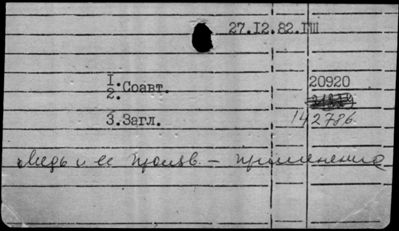 27.12.82.ГШ
1.
2. Соавт. 20920
3.Загл. 142786
Медь и ее произв. - применение